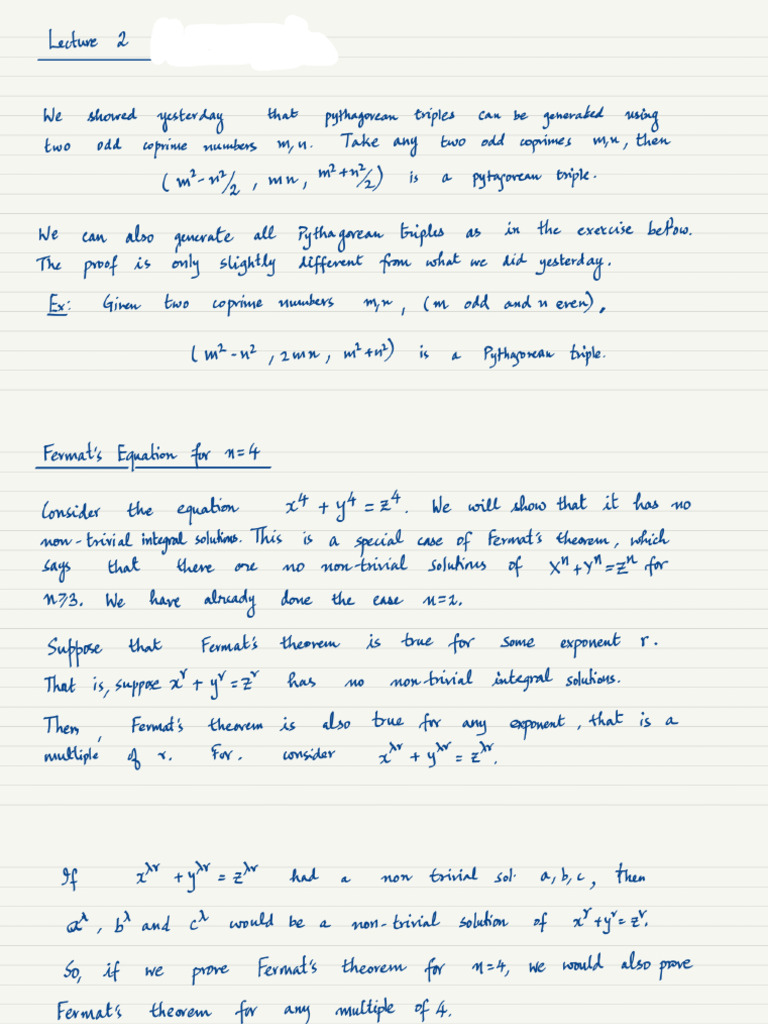 Lecture 2
We showed yesterday that pythagorean triples can be generated using
two odd coprime numbers m,n. Take any two odd coprimes m,n, then
(m²-n²/2, mn, m²+n²/2) is a pytagorean triple.
We can also generate all Pythagorean triples as in the exercise below.
The proof is only slightly different from what we did yesterday.
Ex: Given two coprime numbers m,n, (m odd and n even),
(m²-n², 2mn, m²+n²) is a Pythagorean triple.
Fermat's Equation for n=4
Consider the equation x⁴ + y⁴ = z⁴. We will show that it has no
non-trivial integral solutions. This is a special case of Fermat's theorem, which
says that there are no non-trivial solutions of xⁿ+yⁿ=zⁿ for
n≥3. We have already done the case n=2.
Suppose that Fermat's theorem is true for some exponent r.
That is, suppose xʳ + yʳ = zʳ has no non-trivial integral solutions.
Then, Fermat's theorem is also true for any exponent, that is a
multiple of r. For. consider x^λr + y^λr = z^λr.
If x^λr + y^λr = z^λr had a non trivial sol. a,b,c, then
a^λ, b^λ and c^λ would be a non-trivial solution of xʳ+yʳ=zʳ.
So, if we prove Fermat's theorem for n=4, we would also prove
Fermat's theorem for any multiple of 4.